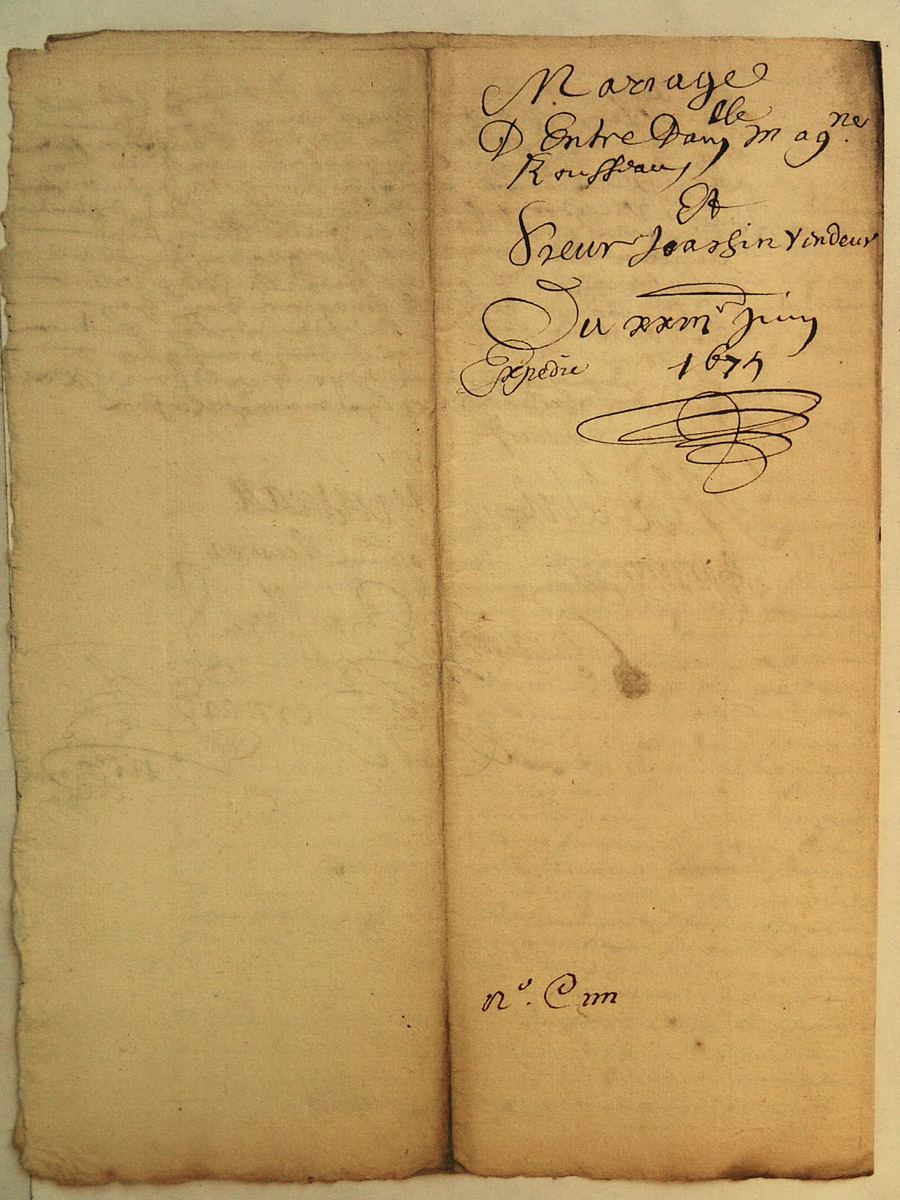 Mariage
D'Entre Dam^lle Mag^ne
Rousseau
Et
Sieur Joassin Vindeur
Du xxiii^e Juin
Expedie 1675
n°. C iiii